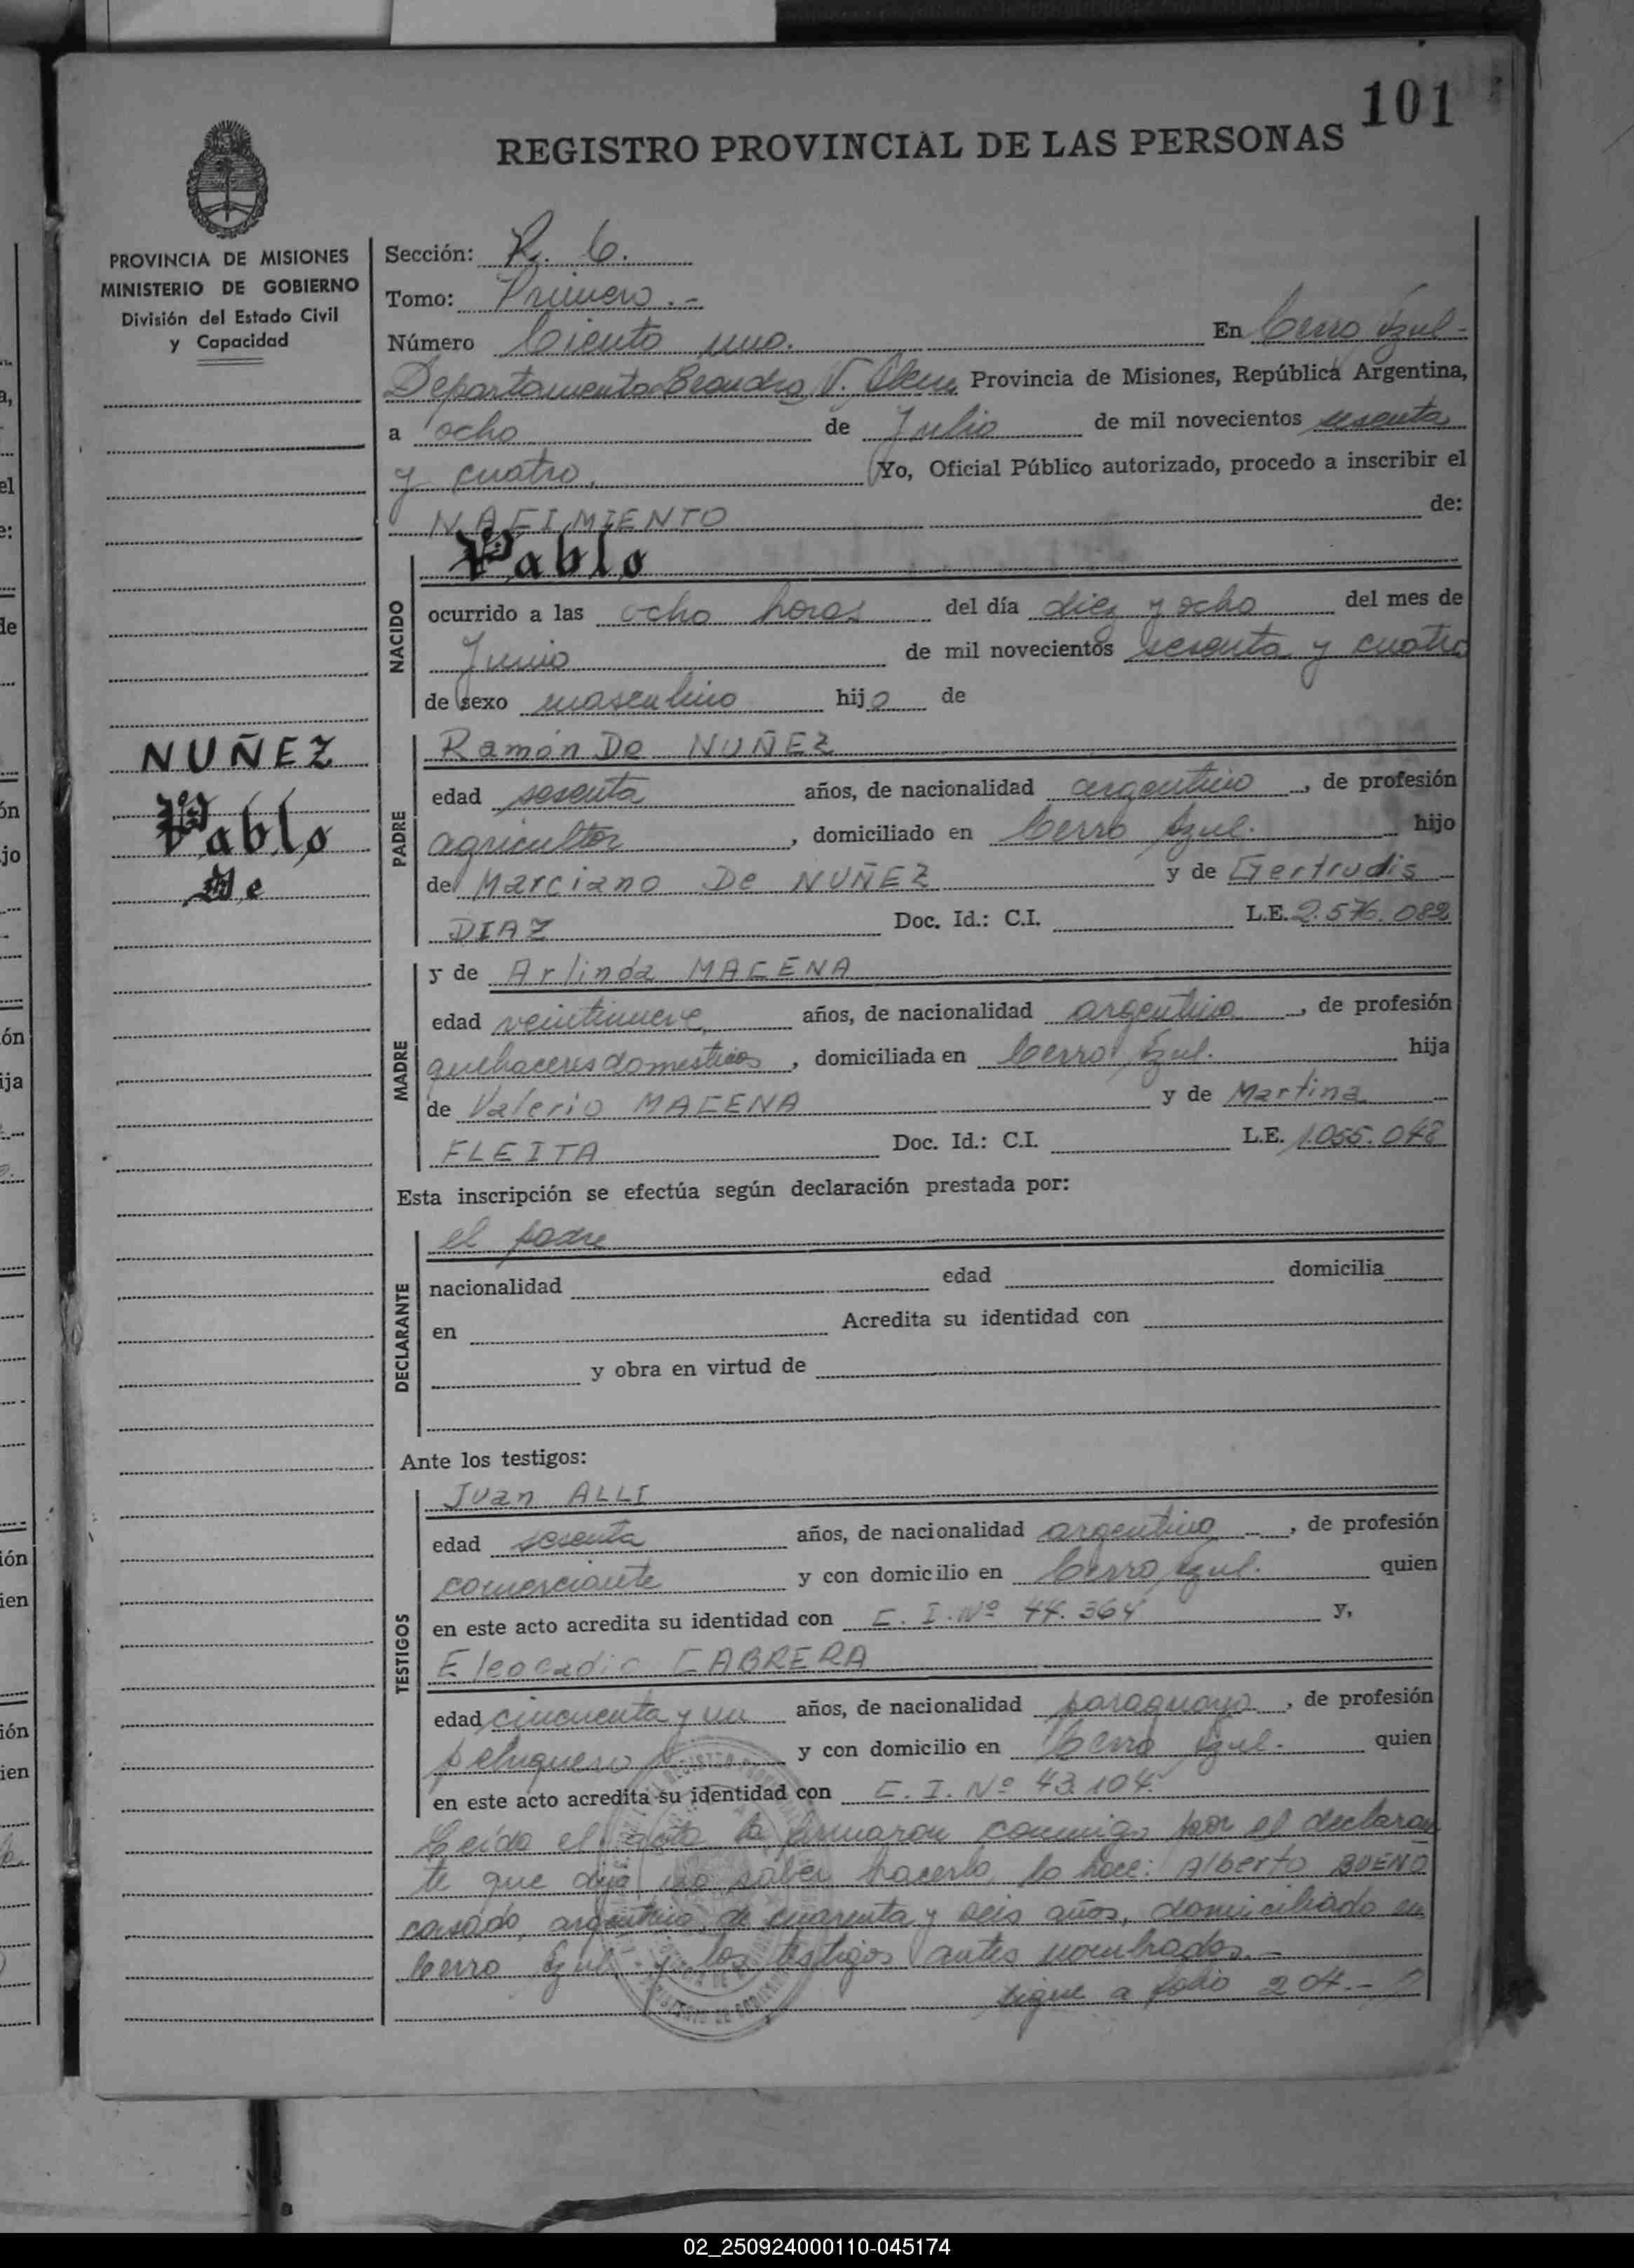 101
REGISTRO PROVINCIAL DE LAS PERSONAS
PROVINCIA DE MISIONES
MINISTERIO DE GOBIERNO
División del Estado Civil
y Capacidad
NUÑEZ
Pablo
De
Sección: R. C.
Tomo: Primero.-
Número Ciento uno. En Cerro Azul-
Departamento Leandro N. Alem, Provincia de Misiones, República Argentina,
a ocho de Julio de mil novecientos sesenta
y cuatro, Yo, Oficial Público autorizado, procedo a inscribir el
NACIMIENTO de:
NACIDO
Pablo
ocurrido a las ocho horas del día diez y ocho del mes de
Junio de mil novecientos sesenta y cuatro
de sexo masculino hijo de
PADRE
Ramón De NUÑEZ
edad sesenta años, de nacionalidad argentino, de profesión
agricultor, domiciliado en Cerro Azul. hijo
de Marciano De NUÑEZ y de Gertrudis
DIAZ Doc. Id.: C.I. L.E. 2.576.082
MADRE
y de Arlinda MACENA
edad veintinueve años, de nacionalidad argentina, de profesión
quehaceres domesticos, domiciliada en Cerro Azul. hija
de Valerio MACENA y de Martina
FLEITA Doc. Id.: C.I. L.E. 1.055.048
Esta inscripción se efectúa según declaración prestada por:
DECLARANTE
el padre
nacionalidad edad domicilia
en Acredita su identidad con
y obra en virtud de
Ante los testigos:
TESTIGOS
Juan ALLI
edad sesenta años, de nacionalidad argentino, de profesión
comerciante y con domicilio en Cerro Azul. quien
en este acto acredita su identidad con C. I. Nº 44.364 y,
Eleocadio CABRERA
edad cincuenta y un años, de nacionalidad paraguayo, de profesión
peluquero y con domicilio en Cerro Azul. quien
en este acto acredita su identidad con C. I. Nº 43.104.
Leída el acta la firmaron conmigo por el declaran
te que dijo no saber hacerlo, lo hace: Alberto BUENO
casado, argentino, de cuarenta y seis años, domiciliado en
Cerro Azul y los testigos antes nombrados.-
sigue a folio 204.-
02_250924000110-045174